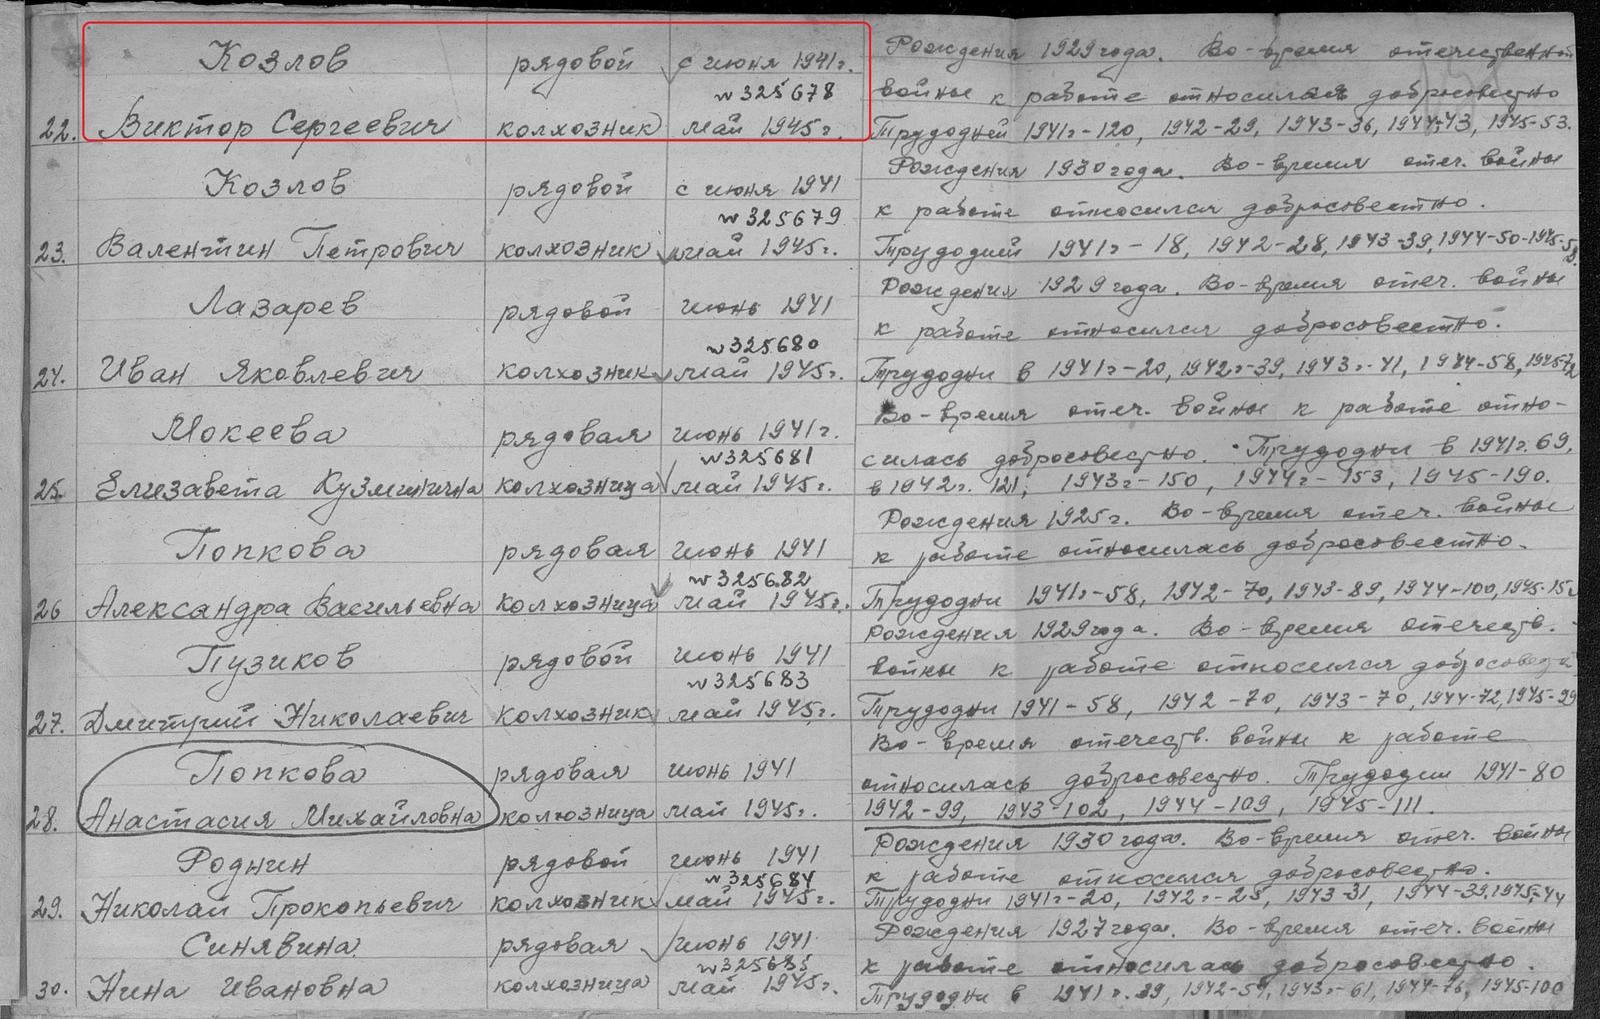 Козлов рядовой с июня 1941г. Рождения 1929 года. Во-время отечественной
N325678 войны к работе относился добросовестно
22. Виктор Сергеевич колхозник май 1945г. Трудодней 1941г-120, 1942-29, 1943-36, 1944-43, 1945-53.
Козлов рядовой с июня 1941 Рождения 1930 года. Во-время отеч. войны
N325679 к работе относился добросовестно.
23. Валентин Петрович колхозник май 1945г. Трудодней 1941г-18, 1942-28, 1943-39, 1944-50-1945-58.
Лазарев рядовой июнь 1941 Рождения 1929 года. Во-время отеч. войны
N325680 к работе относился добросовестно.
24. Иван Яковлевич колхозник май 1945г. Трудодни в 1941г-20, 1942г-39, 1943г-41, 1944-58, 1945-72
Мокеева рядовая июнь 1941г. Во-время отеч. войны к работе отно-
N325681 силась добросовестно. Трудодни в 1941г. 69,
25. Елизавета Кузминична колхозница май 1945г. в 1942г. 121, 1943г-150, 1944г-153, 1945-190.
Попкова рядовая июнь 1941 Рождения 1925г. Во-время отеч. войны
N325682 к работе относилась добросовестно.
26 Александра Васильевна колхозница май 1945г. Трудодни 1941г-58, 1942-70, 1943-89, 1944-100,
Пузиков рядовой июнь 1941 Рождения 1929 года. Во-время отечеств.
N325683 войны к работе относился добросовестно
27. Дмитрий Николаевич колхозник май 1945г. Трудодни 1941-58, 1942-70, 1943-70, 1944-72, 1945-99
Во-время отечеств. войны к работе
Попкова рядовая июнь 1941 относилась добросовестно. Трудодни 1941-80
28. Анастасия Михайловна колхозница май 1945г. 1942-99, 1943-102, 1944-109, 1945-111.
Роднин рядовой июнь 1941 Рождения 1930 года. Во-время отеч. войны
N325684 к работе относился добросовестно.
29. Николай Прокопьевич колхозник май 1945г. Трудодни 1941г-20, 1942г-25, 1943-31, 1944-39, 1945-44
Синявина рядовая июнь 1941 Рождения 1927 года. Во-время отеч. войны
N325685 к работе относилась добросовестно.
30. Нина Ивановна колхозница май 1945г. Трудодни в 1941г. 39, 1942-59, 1943г-61, 1944-76, 1945-100